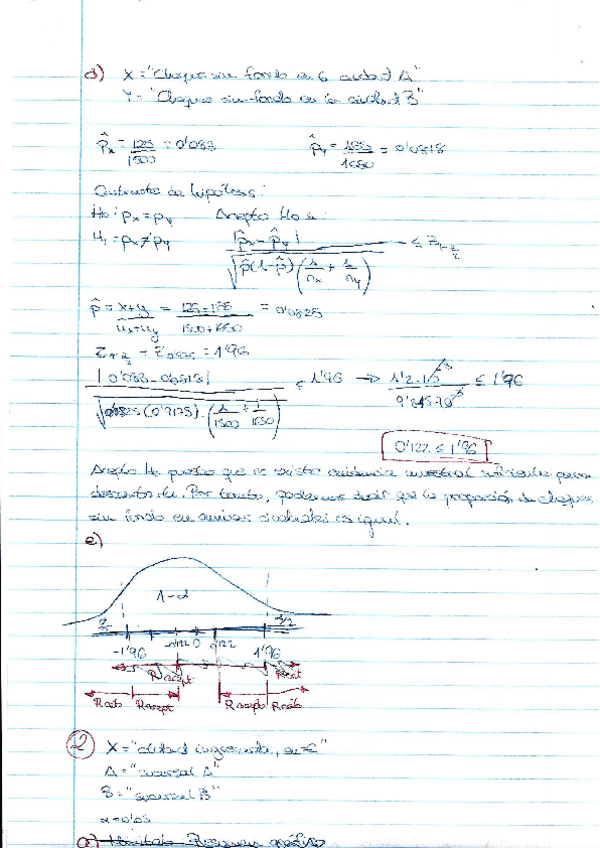 d) X = "Cheques sin fondo en la ciudad A"
Y = "Cheques sin fondo en la ciudad B"
p̂x = 125/1500 = 0'083 p̂y = 135/1650 = 0'0818
Contraste de hipótesis:
H₀: px = py Acepto H₀ si:
H₁ = px ≠ py |p̂x - p̂y| / √(p̂(1-p̂)(1/nx + 1/ny)) ≤ Z1-α/2
p̂ = x+y / nx+ny = 125+135 / 1500+1650 = 0'0825
Z1-α/2 = Z0'975 = 1'96
|0'083 - 0'0818| / √(0'0825(0'9175)·(1/1500 + 1/1650)) ≤ 1'96 → 1'2·10⁻³ / 9'815·10⁻³ ≤ 1'96
0'122 ≤ 1'96
Acepto H₀ puesto que no existe evidencia muestral suficiente para
descartarla. Por tanto, podemos decir que la proporción de cheques
sin fondo en ambas ciudades es igual.
e)
1-α
α/2 α/2
-1'96 -0'122 0 0'122 1'96
Racept Rect
Rcrít Racept Racepto Rcrít
2 X = "cantidad ingresada, en €"
A = "sucursal A"
B = "sucursal B"
α = 0'05
a) Resumen gráfico